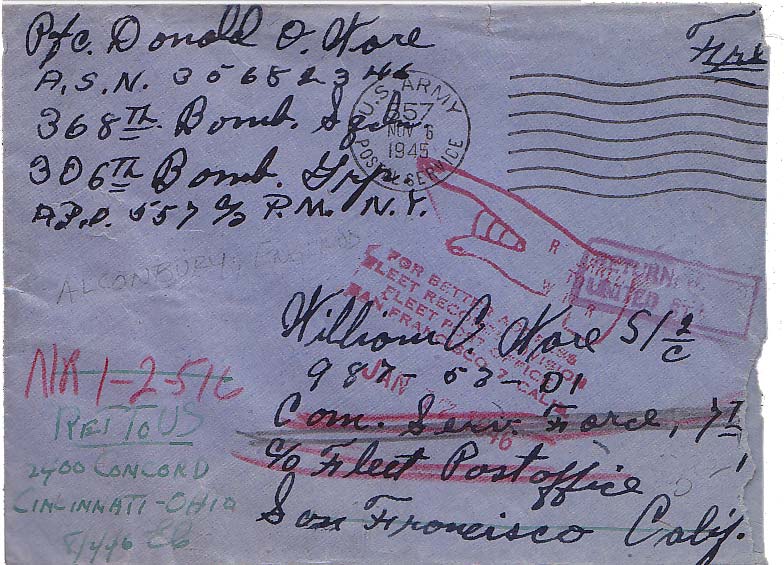 Pfc. Donald O. Ware
Free
A.S.N. 35682346
368th Bomb. Sqdn.
306th Bomb. Grp.
A.P.O. 557 c/o P.M. N.Y.
U.S. ARMY
557
NOV 6
1945
POSTAL SERVICE
ALCONBURY, ENGLAND
FOR BETTER ADDRESS
FLEET RECORDS DIVISION
FLEET POST OFFICE
SAN FRANCISCO 7, CALIF.
JAN
46
UNITED
William C Ware S1/c
987-53-01
Com. Serv. Force, 7
c/o Fleet Postoffice
San Francisco Calif.
NR 1-2-546
RET TO US
2400 CONCORD
CINCINNATI-OHIO